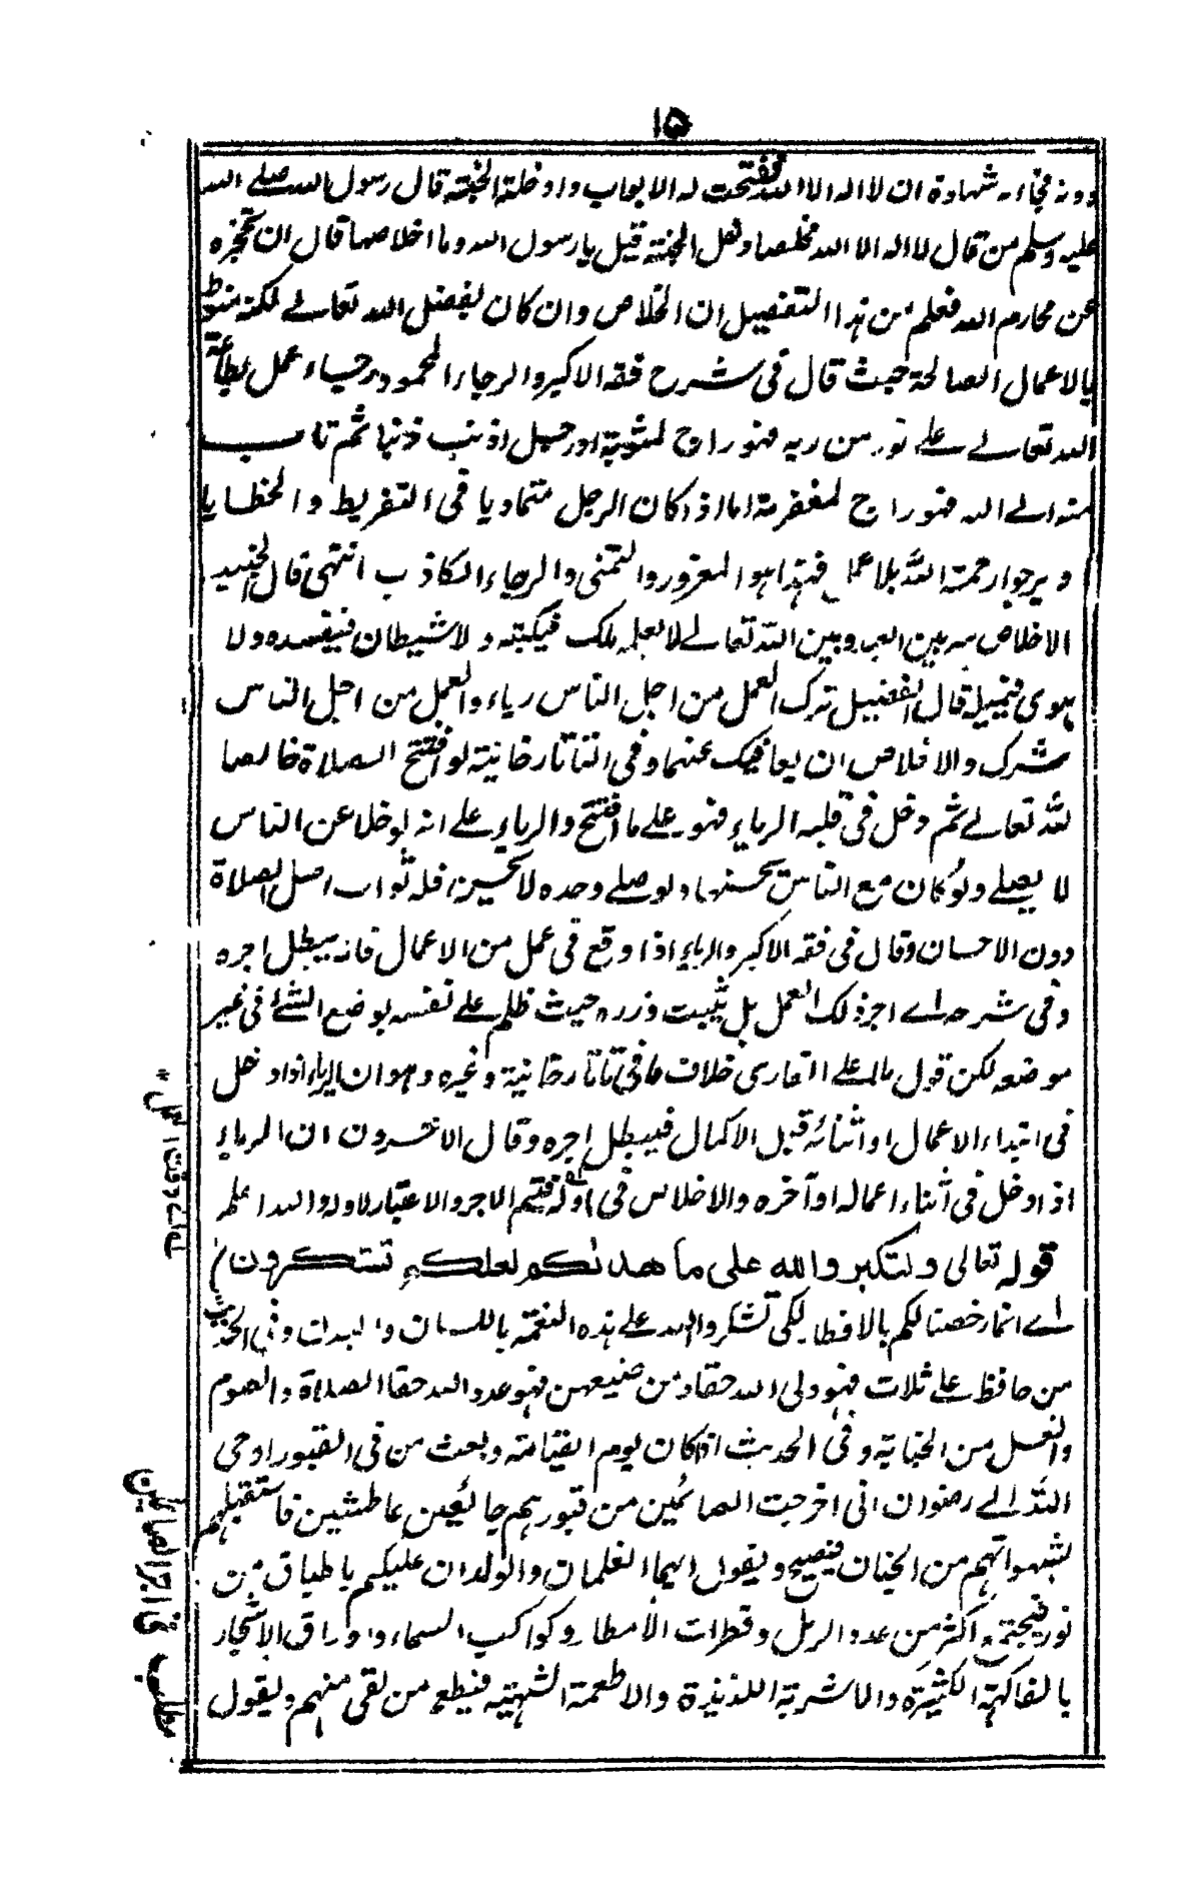 ١٥
دونه فجاءته شهادة ان لا اله الا الله ففتحت له الابواب وادخلته الجنة قال رسول الله صلى الله
عليه وسلم من قال لا اله الا الله مخلصا دخل الجنة قيل يا رسول الله وما اخلاصها قال ان تحجزه
عن محارم الله فعلم من هذا التفصيل ان الخلاص وان كان بفضل الله تعالى لكنه منوط
بالاعمال الصالحة حيث قال فى شرح فقه الاكبر والرجاء المحمود رجاء عمل بطاعة
الله تعالى على نور من ربه فهو راج لمثوبته او رجل اذنب ذنبا ثم تاب
منه الى الله فهو راج لمغفرته اما اذا كان الرجل متماديا فى التفريط والخطايا
ويرجوا رحمة الله بلا عمل فهذا هو المغرور والتمنى والرجاء الكاذب انتهى قال الجنيد
الاخلاص سر بين العبد وبين الله تعالى لا يعلمه ملك فيكتبه ولا شيطان فيفسده ولا
هوى فيميله قال الفضيل ترك العمل من اجل الناس رياء والعمل من اجل الناس
شرك والاخلاص ان يعافيك عنهما وفى التتاتارخانية لو افتتح الصلاة خالصا
لله تعالى ثم دخل فى قلبه الرياء فهو على ما افتتح والرياء على انه لو خلا عن الناس
لا يصلى ولو كان مع الناس يحسنها ولو صلى وحده لا يحسن فله ثواب اصل الصلاة
دون الاحسان وقال فى فقه الاكبر والرياء اذا وقع فى عمل من الاعمال فانه يبطل اجره
وفى شرحه اى اجر ذلك العمل بل يثبت وزره حيث ظلم على نفسه بوضع الشئ فى غير
موضعه لكن قول ملا على القارى خلاف ما فى تاتارخانية وغيره وهو ان الرياء اذا دخل
فى ابتداء الاعمال او اثنائه قبل الاكمال فيبطل اجره وقال الاخرون ان الرياء
اذا دخل فى أثناء اعماله او آخره والاخلاص فى اوله فتم الاجر والاعتبار لاوله والله اعلم
قوله تعالى ولتكبروا الله على ما هداكم ولعلكم تشكرون
اى انما رخصنا لكم بالافطار لكى تشكروا الله على هذه النعمة باللسان والبدن وفى الحديث
من حافظ على ثلاث فهو ولى الله حقا ومن ضيعهن فهو عدو الله حقا الصلاة والصوم
والغسل من الجنابة وفى الحديث اذا كان يوم القيامة وبعث من فى القبور اوحى
الله الى رضوان انى اخرجت الصائمين من قبورهم جائعين عاطشين فاستقبلهم
بشهواتهم من الجنان فيصيح ويقول ايها الغلمان والولدان عليكم باطباق من
نور فيجتمع اكثر من عدد الرمل وقطرات الامطار وكواكب السماء واوراق الاشجار
بالفاكهة الكثيرة والاشربة اللذيذة والاطعمة الشهية فيطعم من لقى منهم ويقول
مطلب فى اجر الصائمين